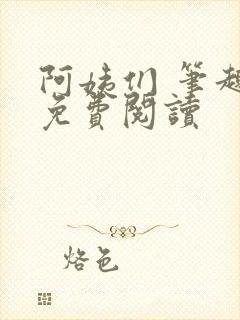 阿姨们 筆趣
免費閱讀
烙色